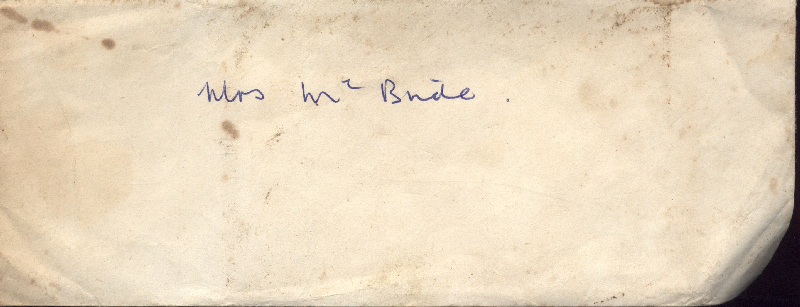 Mrs Mc Bride.